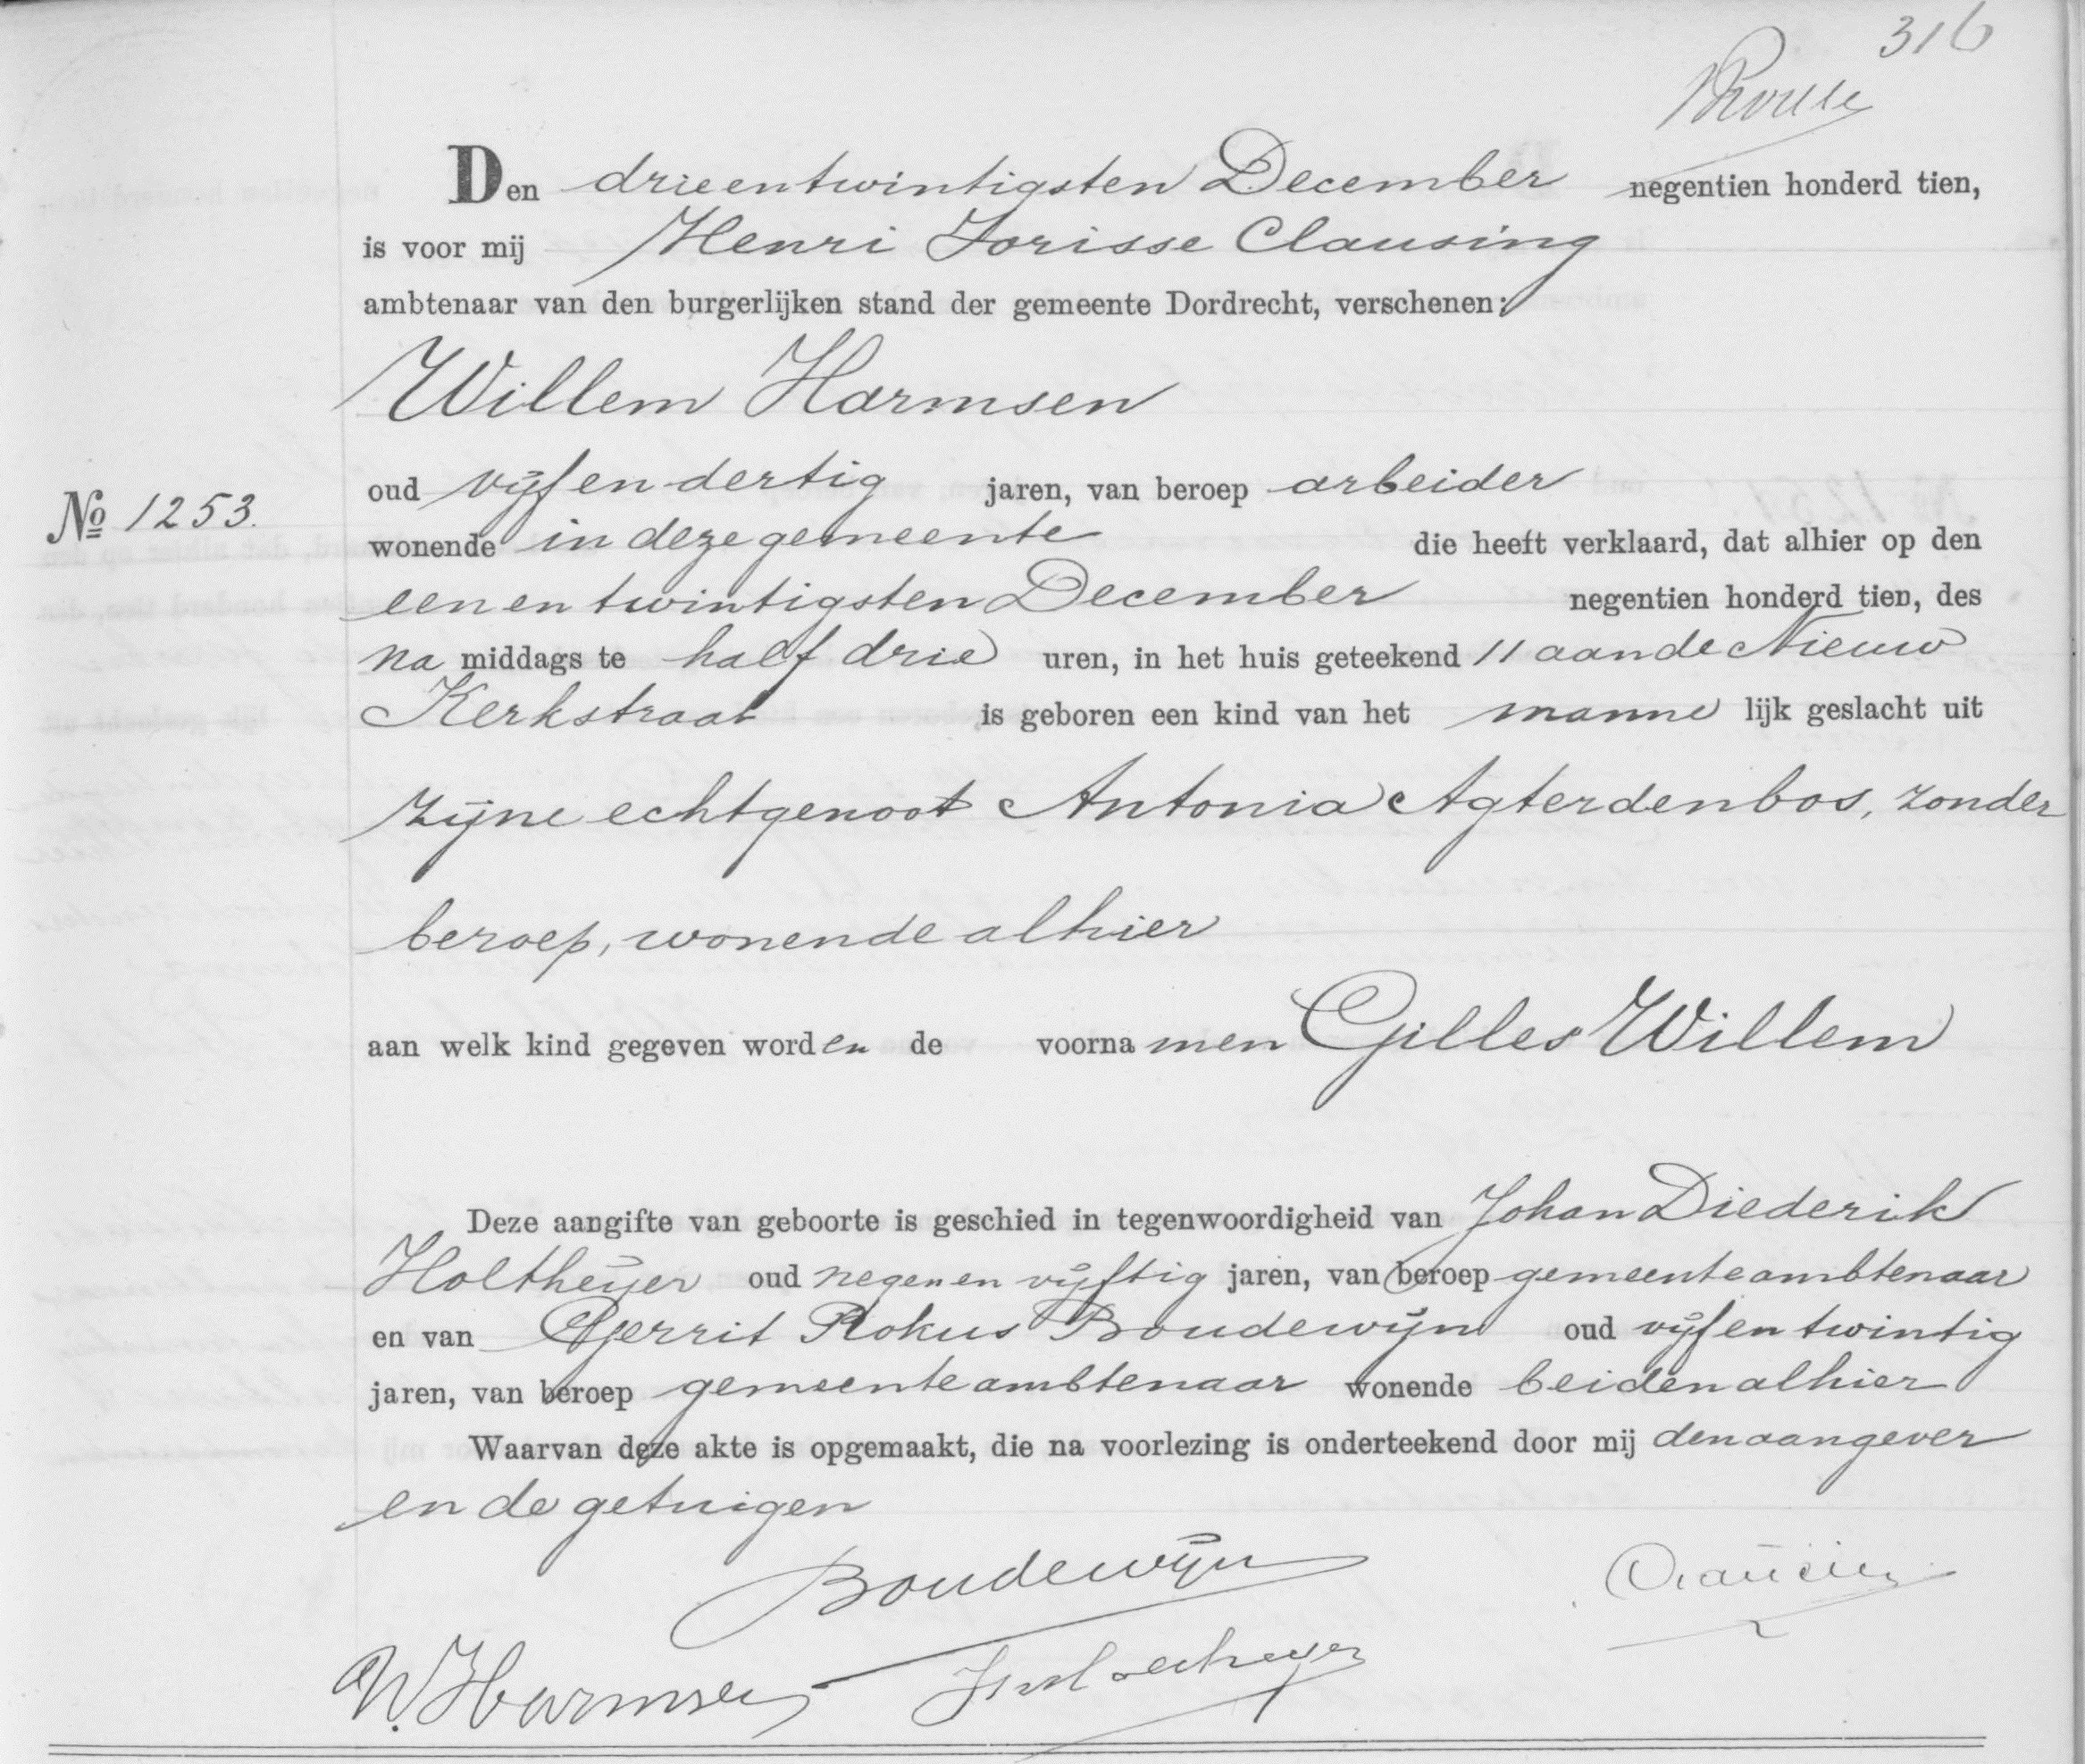 316
Den drieentwintigsten December negentien honderd tien,
is voor mij Henri Jorisse Clausing
ambtenaar van den burgerlijken stand der gemeente Dordrecht, verschenen:
Willem Harmsen
No 1253.
oud vijfendertig jaren, van beroep arbeider
wonende in deze gemeente die heeft verklaard, dat alhier op den
eenentwintigsten December negentien honderd tien, des
na middags te half drie uren, in het huis geteekend 11 aan de Nieuw
Kerkstraat is geboren een kind van het manne lijk geslacht uit
zijne echtgenoot Antonia Agterdenbos, zonder
beroep, wonende alhier
aan welk kind gegeven worden de voornamen Gilles Willem
Deze aangifte van geboorte is geschied in tegenwoordigheid van Johan Diederik
Holtheijer oud negenen vijftig jaren, van beroep gemeenteambtenaar
en van Gerrit Rokus Boudewijn oud vijfentwintig
jaren, van beroep gemeenteambtenaar wonende beiden alhier
Waarvan deze akte is opgemaakt, die na voorlezing is onderteekend door mij den aangever
en de getuigen
Boudewijn
W. Harmsen